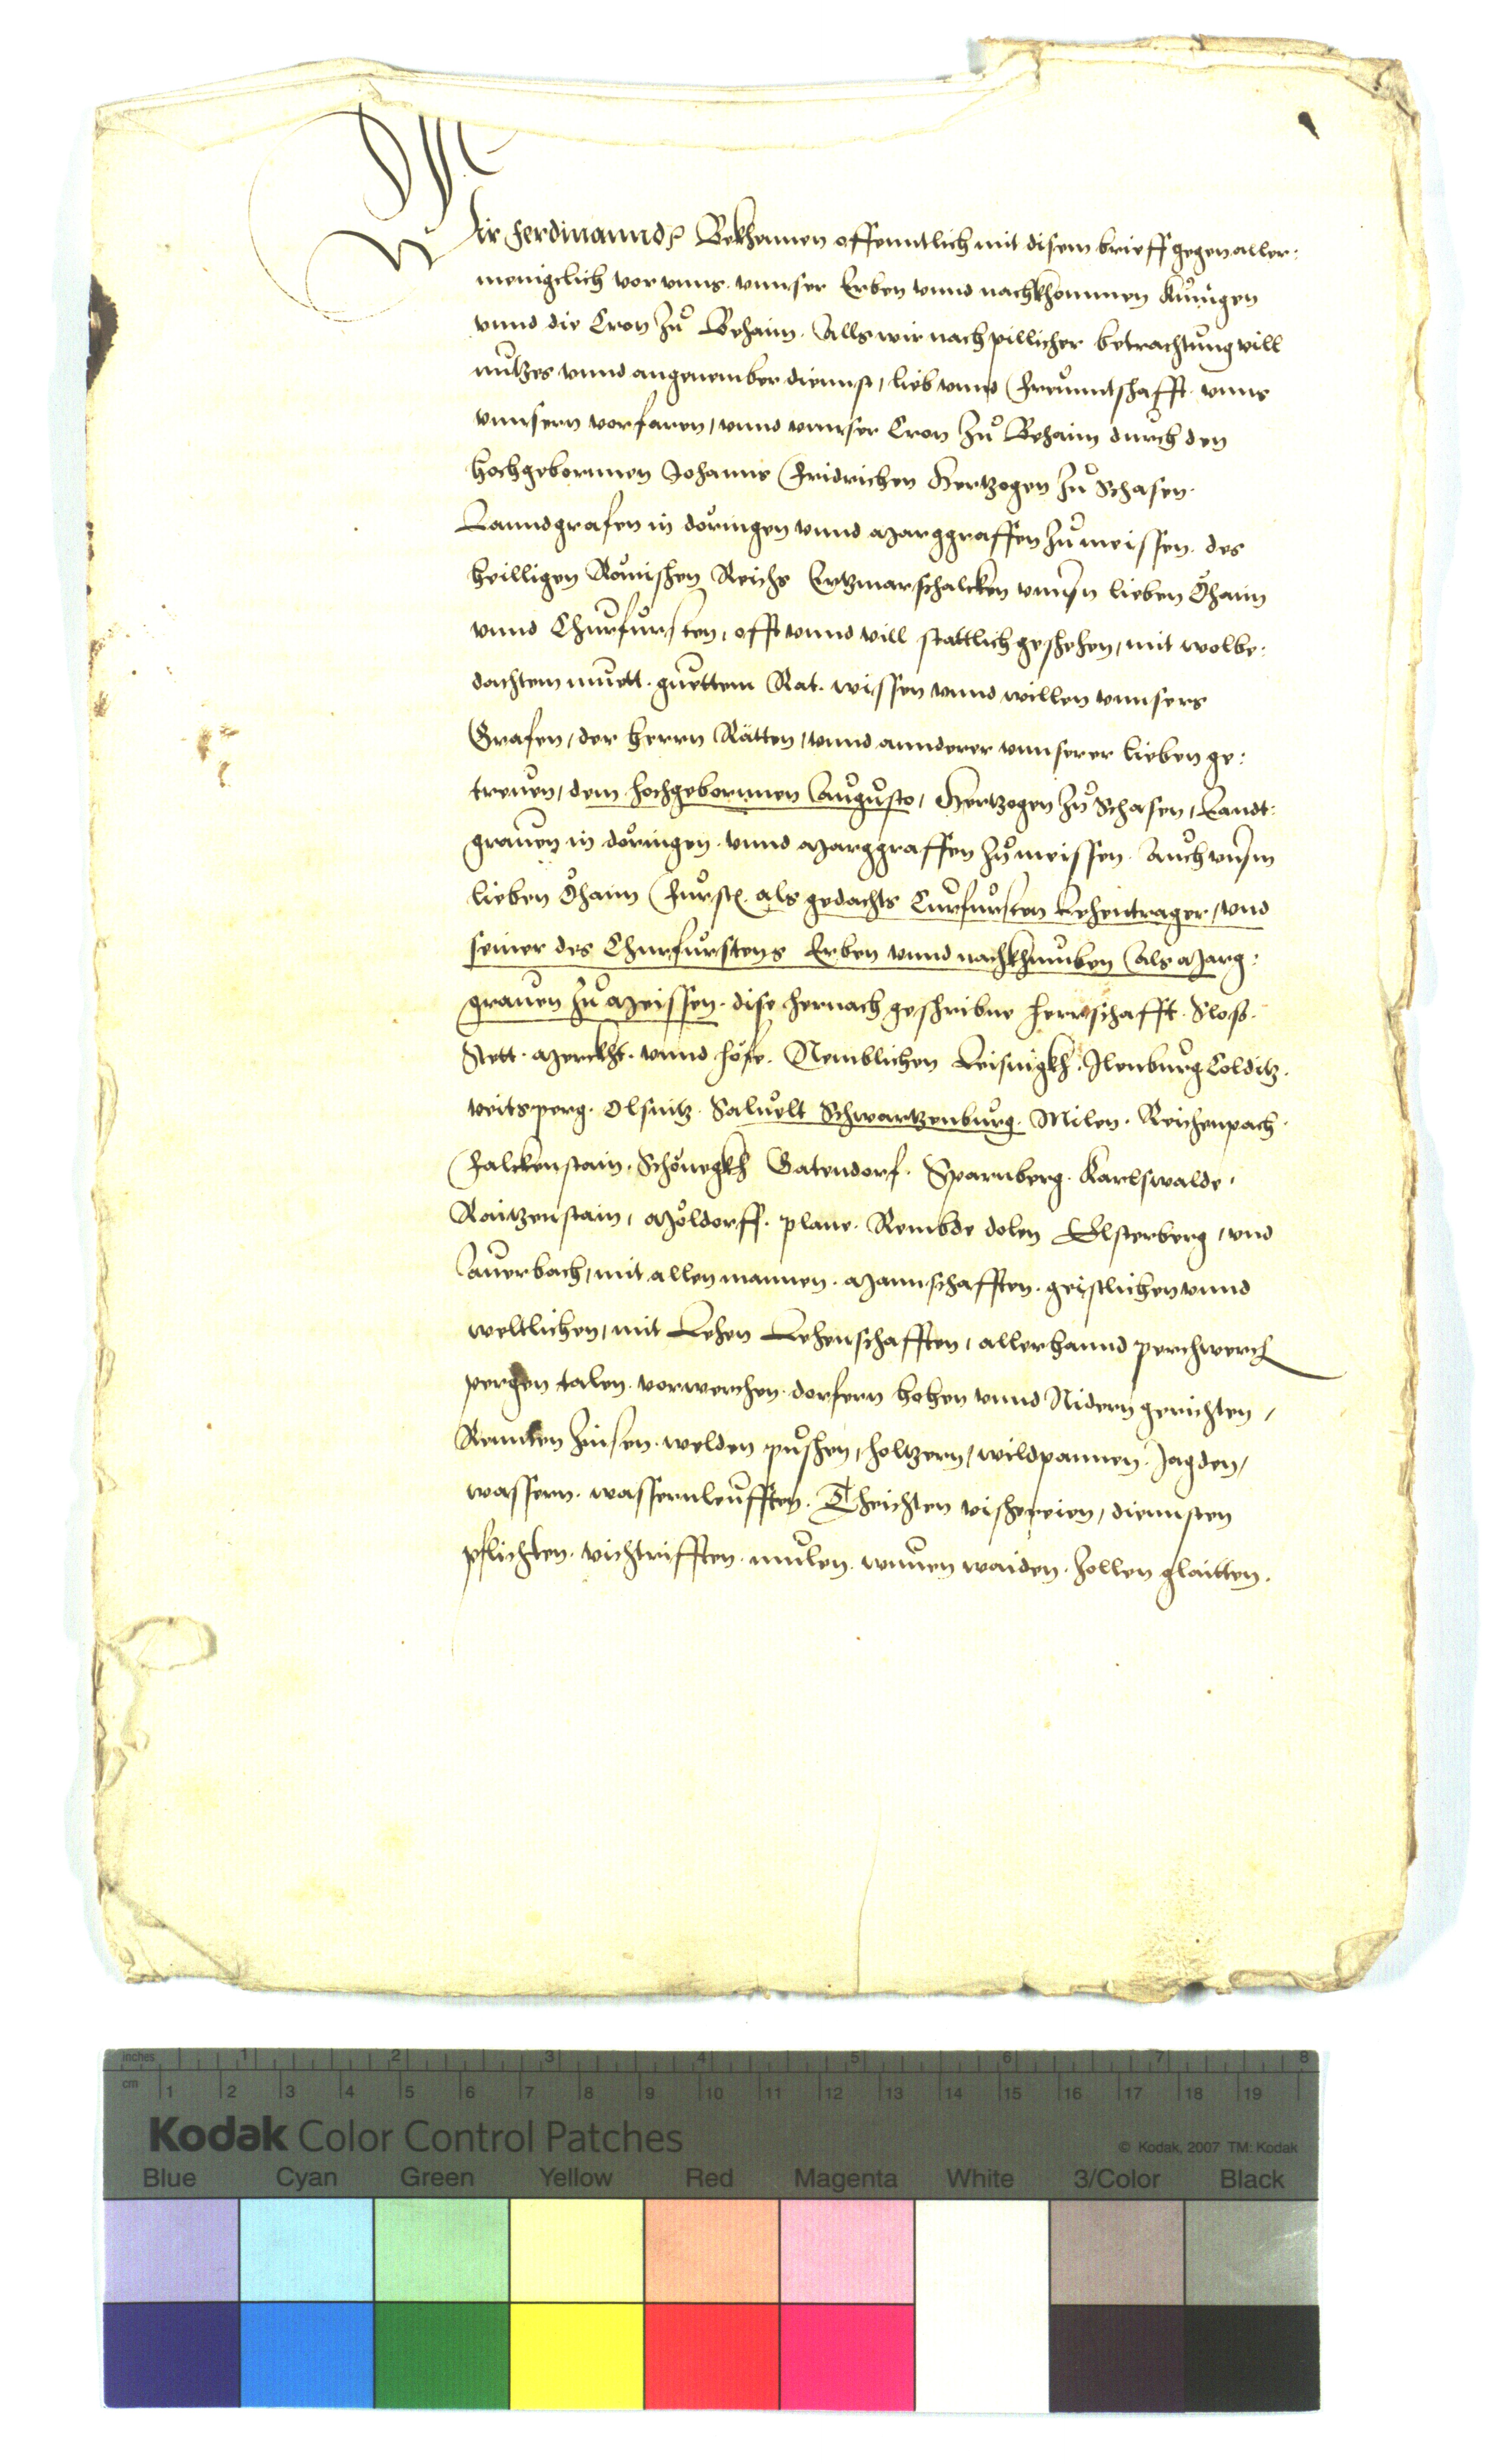 Wir Ferdinannd ꝛc Bekhennen offenntlich mit disem brieff gegen aller:
menigclich vor vnns. vnnser Erben vnnd nachkhommen Kunigen
vnnd die Cron Zů Behaim. Alls wir nach pillicher betrachtung vill
nutzes vnnd angenember diennst, lieb vnnd Freunntschafft. vnns
vnnsern vorfaren, vnnd vnnser Cron Zů Behaim durch den
hochgebornnen Johanns Fridrichen Hertzogen Zů Schasen.
Lanndgrafen in doringen vnnd Marggraffen Zů meissen. des
heilligen Romischen Reichs Ertzmarschalcken vnnsn lieben Öhaim
vnnd Churfursten, offt vnnd vill stattlich geschehen, mit wolbe:
dachtem muett. guettem Rat. wissen vnnd willen vnnsers
Grafen, der herrn Rätten, vnnd annderer vnnserer lieben ge:
treuen, dem hochgebornnen Augusto, Hertzogen Zů Schasen, Landt:
grauen in doringen. vnnd Marggraffen Zů meissen. Auch vnsm
lieben Öhaim Fursten. als gedachts Curfursten Lehentrager, vnd
seiner des Churfurstens Erben vnnd nachkhmuben als Marg:
grauen Zů Meissen. dise hernach geschribne herrschafft. Slos.
Stett. Merckht. vnnd höfe. Nemblichen Leisnigkh. Jlenburg Colditz.
veitsperg. Olsnitz. Saluelt Schwartzenburg. Milen. Reichenpach.
Falckenstain. Schönegkh Gatendorf. Sparnberg. Karlswalde,
Raitzenstain, Moldorff. plane. Rembde dolen Elsterberg, vnd
Auerbach, mit allen mannen. Mannschafften. geistlichen vnnd
weltlichen, mit Lehen Lehenschafften, allerhannd perchwerch
pergen talen. vorwerchen. dorfern hohen vnnd Nidern gerichten,
Rennten Zinsen. welden puschen, holtzern, wildpannen. Jagden,
wassern. wassernleufften. Theichten vischereien, diennsten
pflichten. vichtrifften. mulen. wunen waiden. Zollen glaitten.
inches 1 2 3 4 5 6 7 8
cm 1 2 3 4 5 6 7 8 9 10 11 12 13 14 15 16 17 18 19
Kodak Color Control Patches
© Kodak, 2007 TM: Kodak
Blue Cyan Green Yellow Red Magenta White 3/Color Black